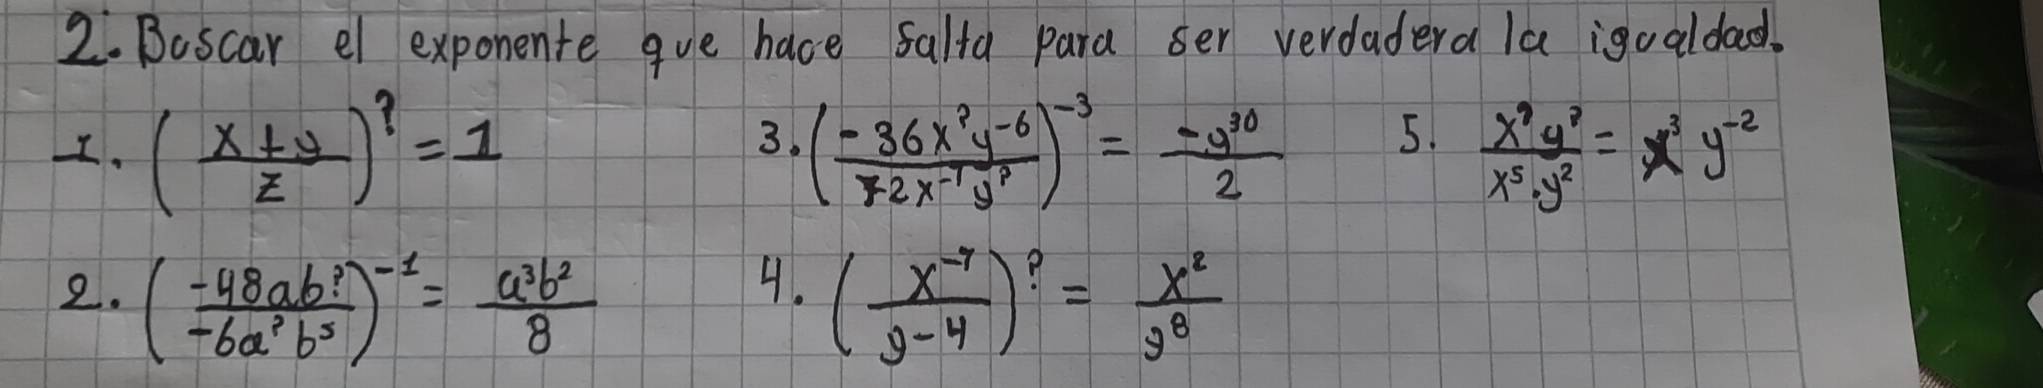 2. Buscar el exponente que hace falta para ser verdadera la igualdad.
1. ((x+y)/z)^? = 1
3. ((-36x^? y^-6)/(72x^-7 y^?))^-3 = (-y^30)/2
5. (x^? y^?)/(x^5 . y^2) = x^3 y^-2
2. ((-48ab^?)/(-6a^? b^5))^-1 = (a^3 b^2)/8
4. ((x^-7)/(y-4))^? = (x^2)/(y^8)